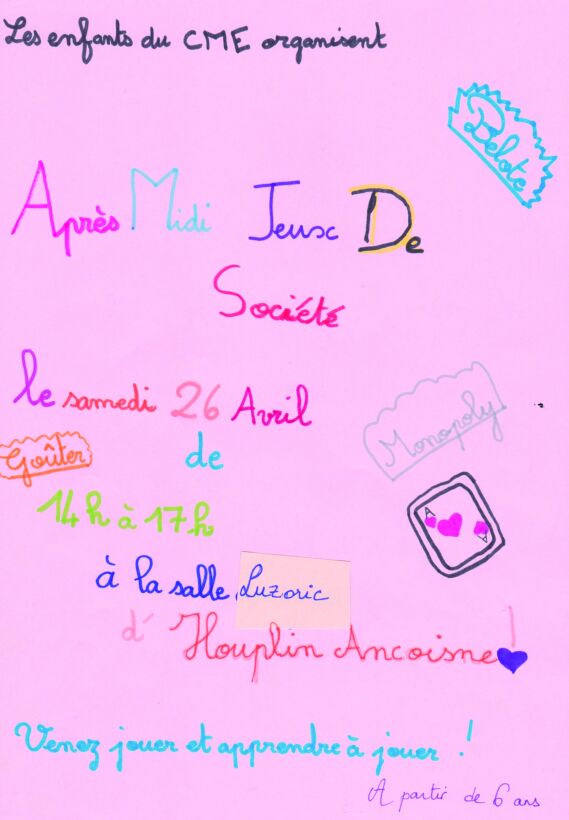 Les enfants du CME organisent
Belote
Après Midi Jeux De
Société
le samedi 26 Avril
Monopoly
Goûter
de
14h à 17h
A
A
à la salle Luzoric
d' Houplin Ancoisne !
Venez jouer et apprendre à jouer !
A partir de 6 ans